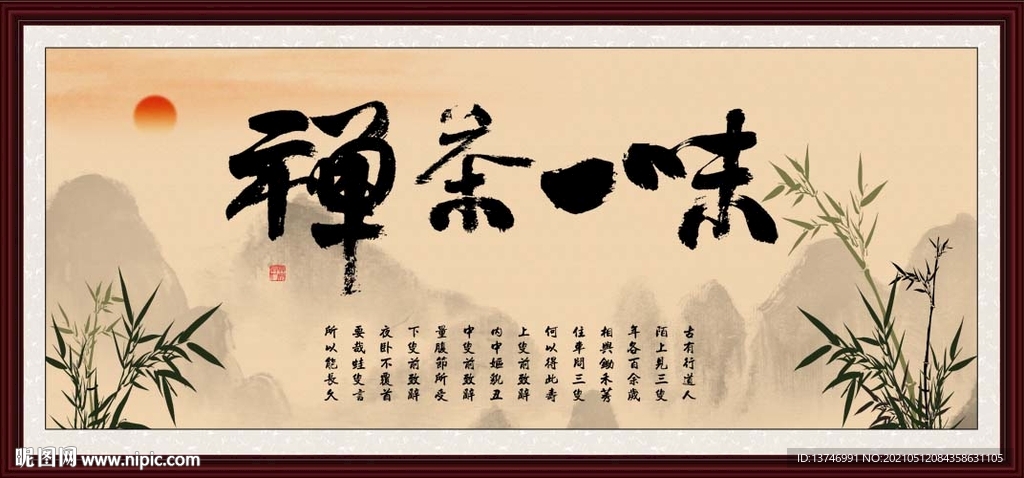 禅茶一味
古有行道人
陌上見三叟
年各百余歲
相與鋤禾莠
住車問三叟
何以得此壽
上叟前致辭
内中嫗貌丑
中叟前致辭
量腹節所受
下叟前致辭
夜卧不覆首
要哉蛙叟言
所以能長久
昵图网 www.nipic.com
ID:13746991 NO:20210512084358631105